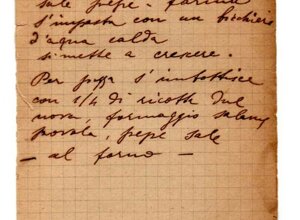 sale pepe. farina
s'impasta con un bicchiere
d'aqua calda
si mette a crescere.
Per pizza s'imbottisce
con 1/4 di ricotta due
nova, formaggio salame
provola, pepe sale
- al forno -